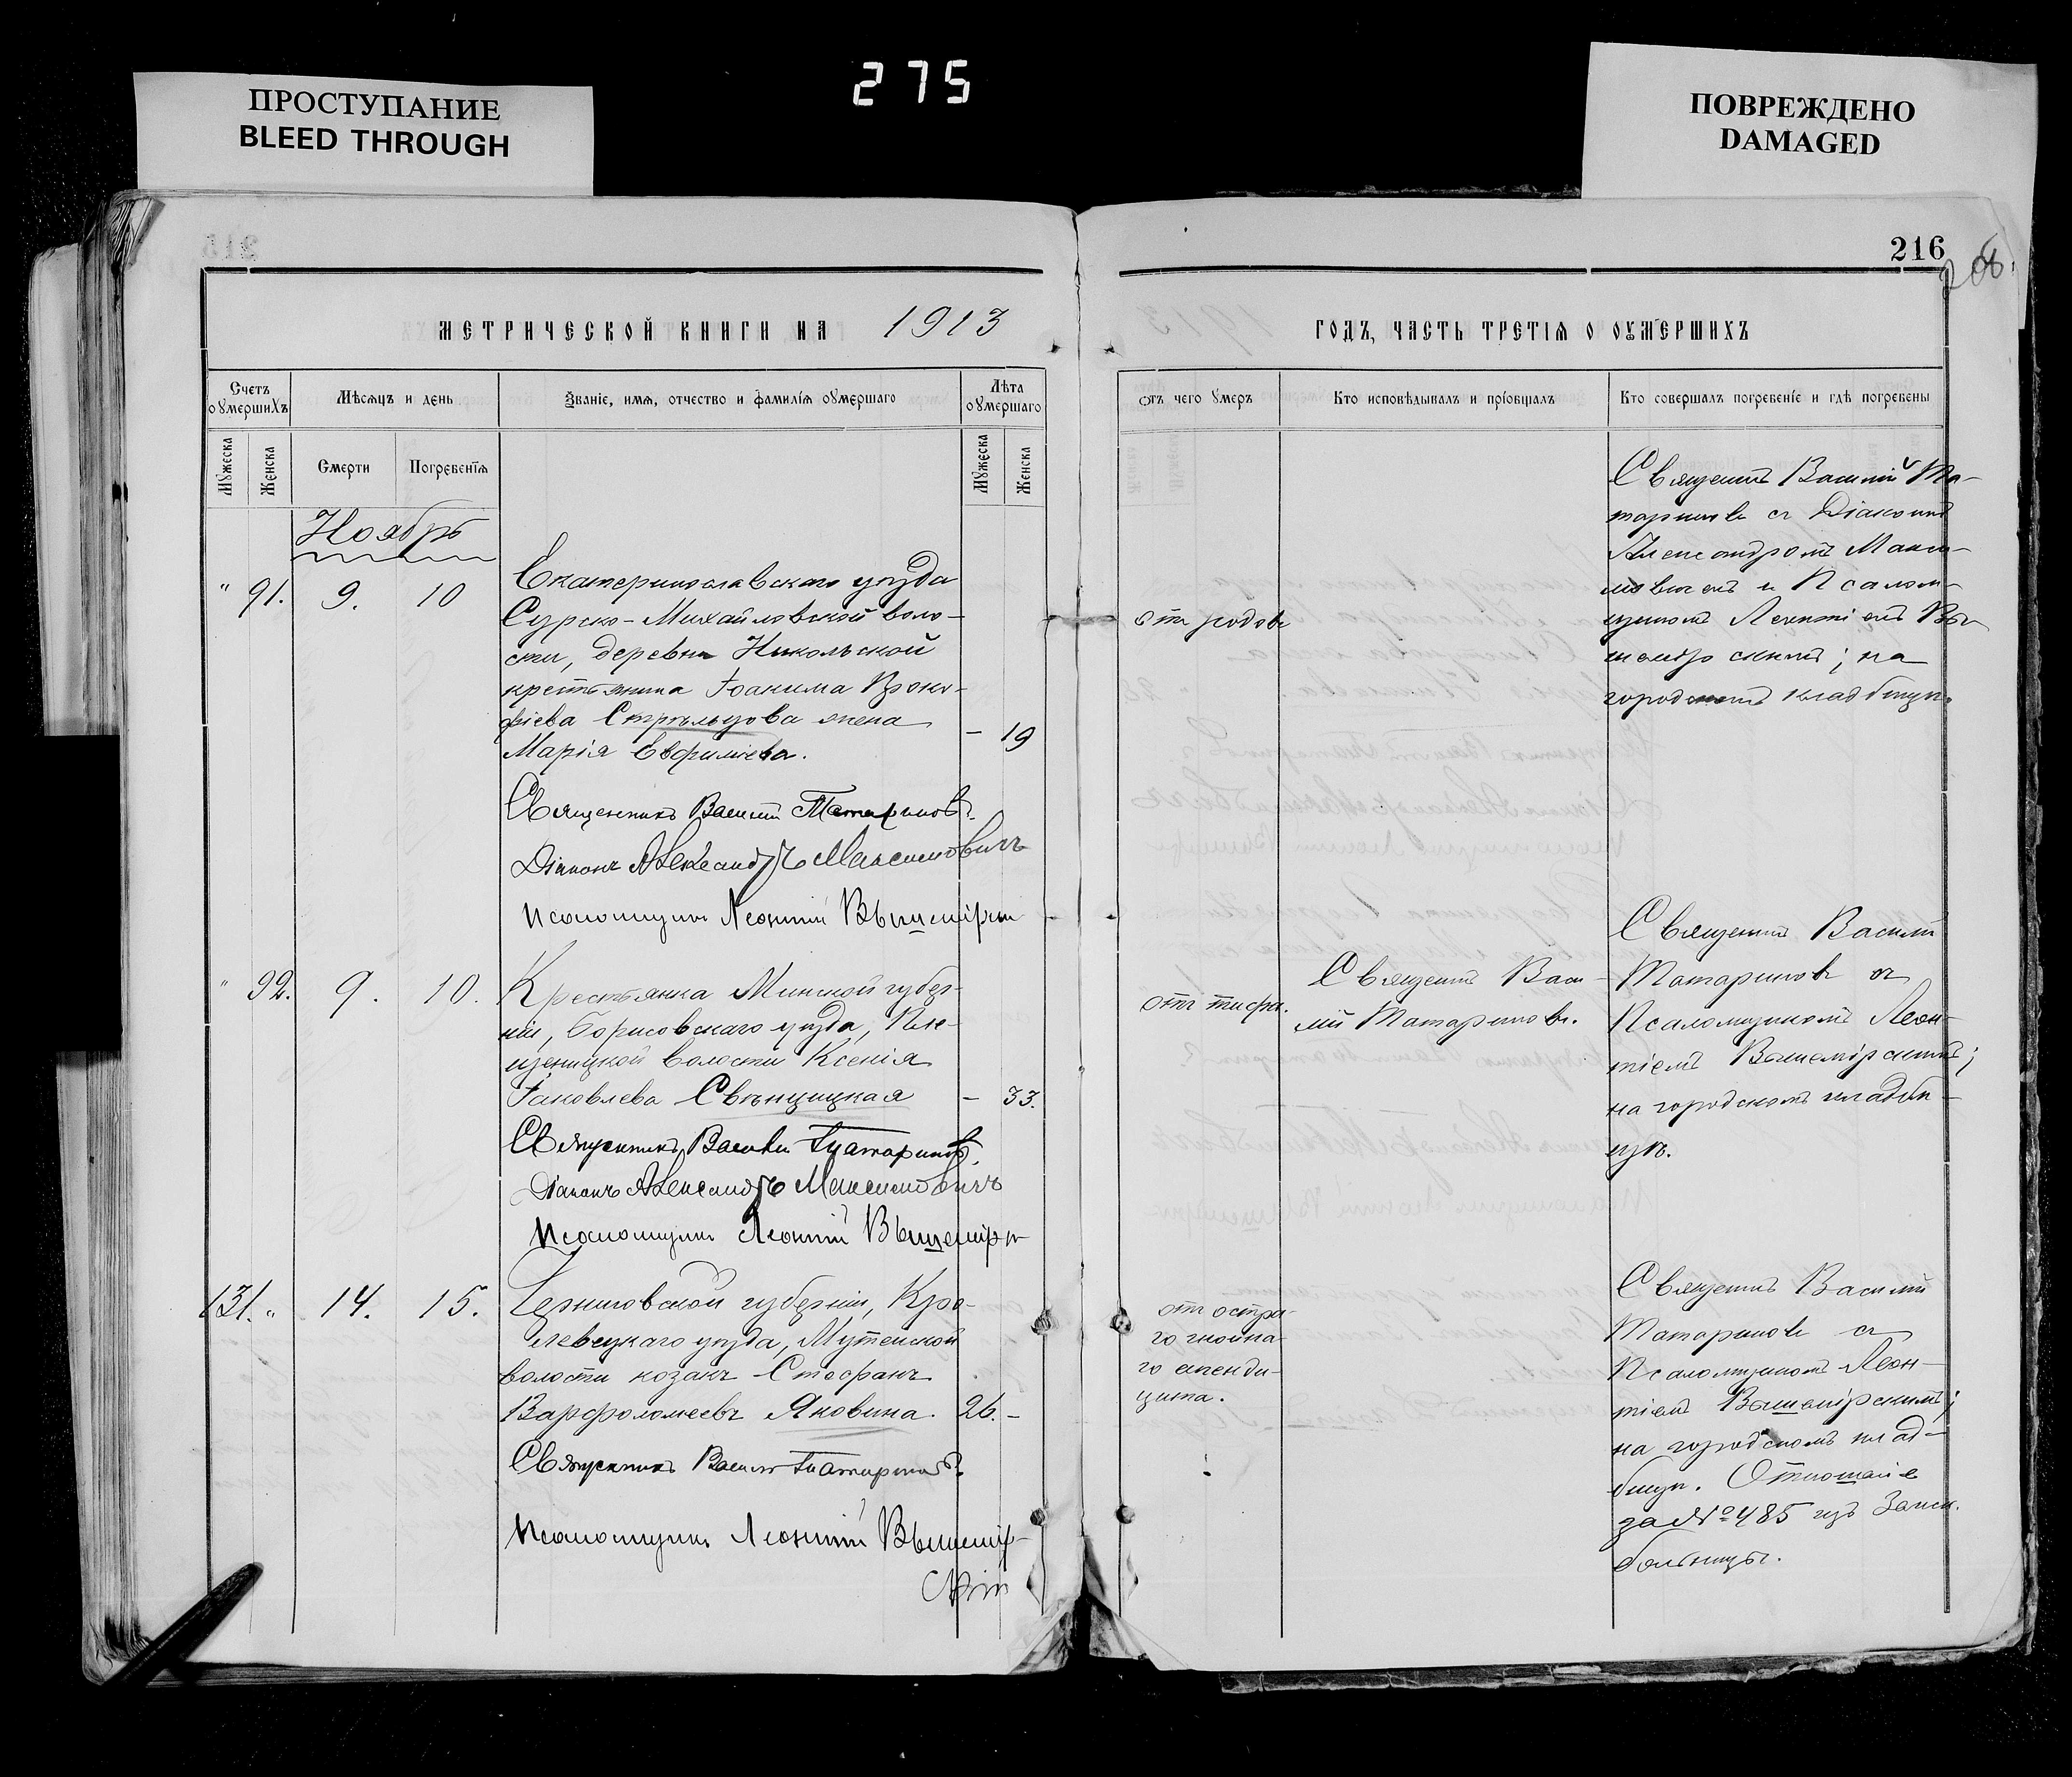 ПРОСТУПАНИЕ
BLEED THROUGH
275
ПОВРЕЖДЕНО
DAMAGED
216
МЕТРИЧЕСКОЙ КНИГИ НА 1913
ГОДЪ, ЧАСТЬ ТРЕТІЯ О ОУМЕРШИХЪ
Счетъ оумершихъ
Мѣсяцъ и день
Званіе, имя, отчество и фамилія оумершаго
Лѣта оумершаго
Мужеска
Женска
Смерти
Погребенія
Мужеска
Женска
отъ чего умеръ
Кто исповѣдывалъ и пріобщалъ
Кто совершалъ погребеніе и гдѣ погребены
Ноябрь
" 91. 9. 10
Екатеринославскаго уѣзда
Сурско-Михайловской воло-
сти, деревни Никольской
крестьянина Іоакима Проко-
фіева Стрѣльцова жена
Марія Евфиміева.
- 19
Священникъ Василій Татариновъ
Діаконъ Александръ Максимовичъ
Псаломщикъ Леонтій Вышемірскій
отъ родовъ
Священникъ Василій Та-
тариновъ съ Діакономъ
Александромъ Макси-
мовичемъ и Псалом-
щикомъ Леонтіемъ Вы-
шемірскимъ; на
городскомъ кладбищѣ.
" 92. 9. 10.
Крестьянка Минской губер-
ніи, Борисовскаго уѣзда, Пле-
щеницкой волости Ксенія
Іаковлева Свѣнцицкая
- 33.
Священникъ Василій Татариновъ
Діаконъ Александръ Максимовичъ
Псаломщикъ Леонтій Вышемірскій
отъ тифа.
Священникъ Васи-
лій Татариновъ.
Священникъ Василій
Татариновъ съ
Псаломщикомъ Леон-
тіемъ Вышемірскимъ;
на городскомъ кладби-
щѣ.
131. " 14. 15.
Черниговской губерніи, Кро-
левецкаго уѣзда, Мутенской
волости козакъ Стефанъ
Варфоломеевъ Яковина.
26. -
Священникъ Василій Татариновъ
Псаломщикъ Леонтій Вышемір-
скій
отъ остра-
го гнойна-
го апенди-
цита.
Священникъ Василій
Татариновъ съ
Псаломщикомъ Леон-
тіемъ Вышемірскимъ;
на городскомъ клад-
бищѣ. Отношеніе
за № 485 изъ Земск.
больницы.